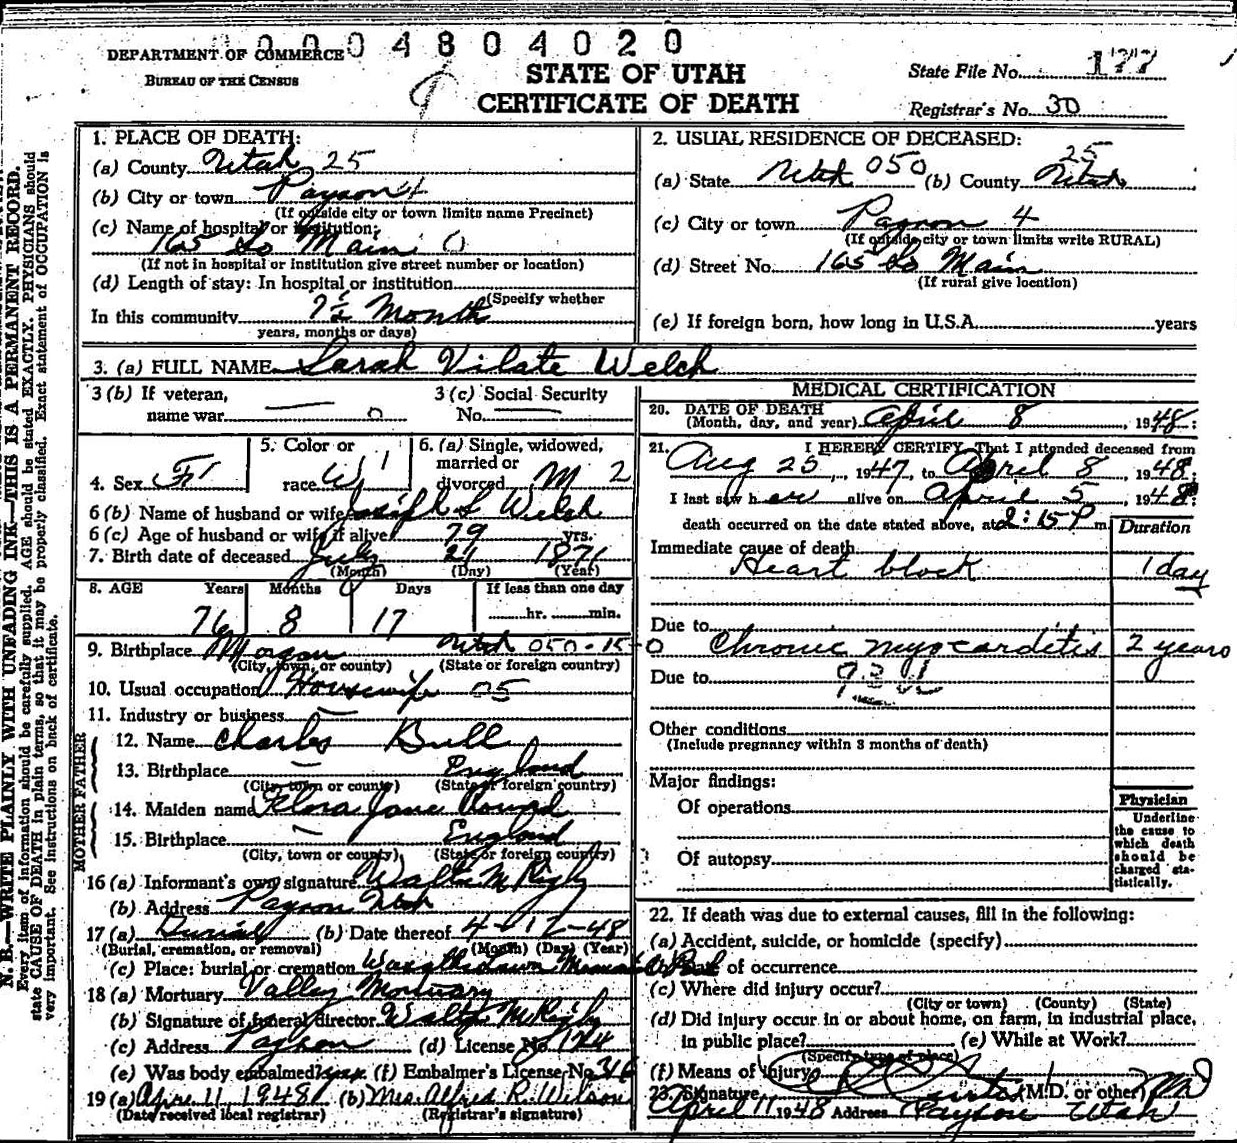 0 0 0 0 4 8 0 4 0 2 0
DEPARTMENT OF COMMERCE
BUREAU OF THE CENSUS
STATE OF UTAH
CERTIFICATE OF DEATH
State File No. 177
Registrar's No. 30
N. B.—WRITE PLAINLY WITH UNFADING INK—THIS IS A PERMANENT RECORD.
Every item of information should be carefully supplied. AGE should be stated EXACTLY. PHYSICIANS should
state CAUSE OF DEATH in plain terms, so that it may be properly classified. Exact statement of OCCUPATION is
very important. See instructions on back of certificate.
1. PLACE OF DEATH:
(a) County Utah 25
(b) City or town Payson 4
(If outside city or town limits name Precinct)
(c) Name of hospital or institution:
165 So Main 0
(If not in hospital or institution give street number or location)
(d) Length of stay: In hospital or institution
(Specify whether
In this community 7½ Month
years, months or days)
2. USUAL RESIDENCE OF DECEASED:
25
(a) State Utah 050 (b) County Utah
(c) City or town Payson 4
(If outside city or town limits write RURAL)
(d) Street No. 165 So Main
(If rural give location)
(e) If foreign born, how long in U.S.A. years
3. (a) FULL NAME Sarah Vilate Welch
3 (b) If veteran,
name war 0
3 (c) Social Security
No.
4. Sex F 1
5. Color or
race W 1
6. (a) Single, widowed,
married or
divorced M 2
6 (b) Name of husband or wife Joseph S Welch
6 (c) Age of husband or wife if alive 79 yrs.
7. Birth date of deceased July 21 1871
(Month) (Day) (Year)
8. AGE Years Months Days If less than one day
76 8 17 hr. min.
9. Birthplace Morgan Utah 050-15-0
(City, town, or county) (State or foreign country)
10. Usual occupation Housewife 05
11. Industry or business
FATHER
12. Name Charles Bull
13. Birthplace England
(City, town or county) (State or foreign country)
MOTHER
14. Maiden name Flora Jane Round
15. Birthplace England
(City, town or county) (State or foreign country)
16 (a) Informant's own signature Walter M Rigby
(b) Address Payson Utah
17 (a) Burial (b) Date thereof 4-12-48
(Burial, cremation, or removal) (Month) (Day) (Year)
(c) Place: burial or cremation Wasatch Lawn Memorial
18 (a) Mortuary Valley Mortuary
(b) Signature of funeral director Walter M Rigby
(c) Address Payson (d) License No. 124
(e) Was body embalmed? yes (f) Embalmer's License No. 316
19 (a) April 11 1948 (b) Mrs. Alfred R. Wilson
(Date received local registrar) (Registrar's signature)
MEDICAL CERTIFICATION
20. DATE OF DEATH
(Month, day, and year) April 8, 1948:
21. I HEREBY CERTIFY, That I attended deceased from
Aug 25, 1947, to April 8 1948;
I last saw her alive on April 5, 1948;
death occurred on the date stated above, at 2:15 P m.
Duration
Immediate cause of death
Heart block 1 day
Due to
Chronic myocarditis 2 years
Due to
Other conditions
(Include pregnancy within 3 months of death)
Major findings:
Of operations
Of autopsy
Physician
Underline
the cause to
which death
should be
charged sta-
tistically.
22. If death was due to external causes, fill in the following:
(a) Accident, suicide, or homicide (specify)
of occurrence
(c) Where did injury occur?
(City or town) (County) (State)
(d) Did injury occur in or about home, on farm, in industrial place,
in public place? (e) While at Work?
(Specify type of place)
(f) Means of injury
23. Signature M.D. or other MD
April 11 1948 Address Payson Utah